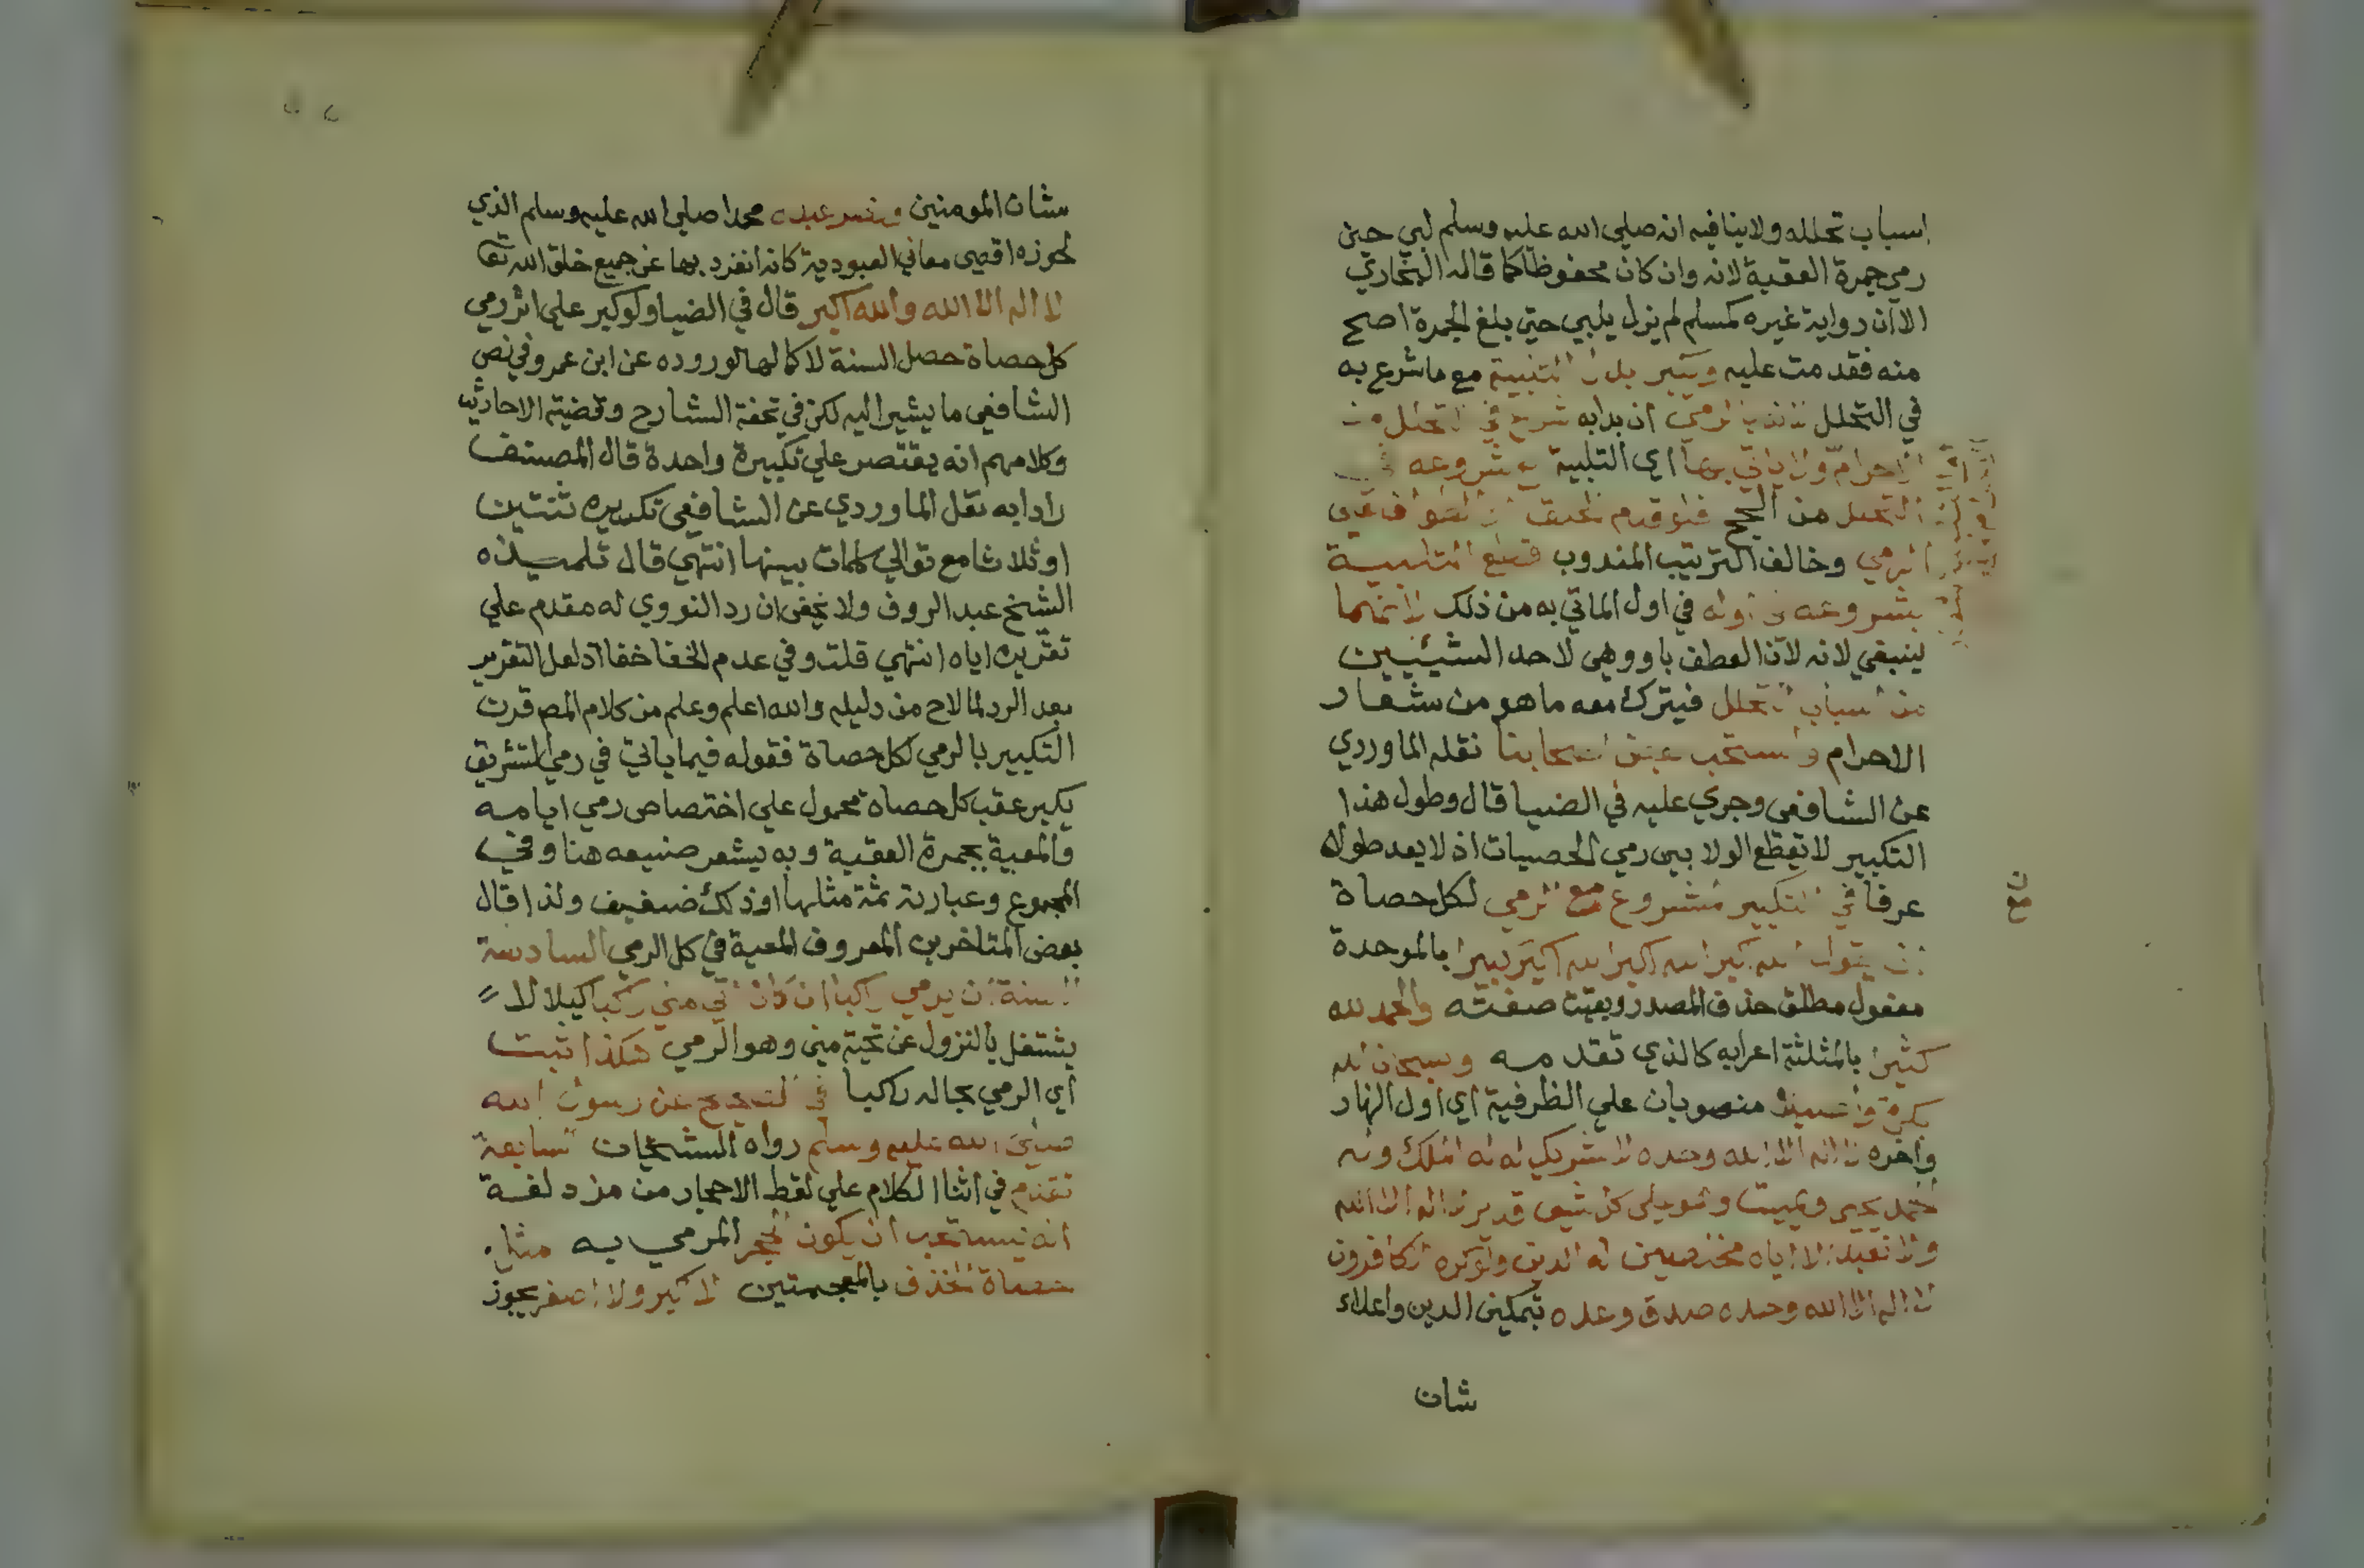 اسباب تحلله ولا ينافيه انه صلي الله عليه وسلم لبي حين
رمي جمرة العقبة لانه وان كان محفوظا كما قاله البخاري
الا ان رواية غيره كمسلم لم يزل يلبي حتي بلغ الجمرة اصح
منه فقدمت عليه ويكبر بدل التلبية مع ما شرع به
في التحلل اذ الرمي ان بدا به شرع في التحلل من
الاحرام ولا ياتي بها اي التلبية مع شروعه في
التحلل من الحج فلو قدم الحلق او الطواف علي
الرمي وخالف الترتيب المندوب قطع التلبية
بشروعه في اوله في اول الماتي به من ذلك لانهما
ينبغي لانه لان العطف باو وهي لاحد الشيئين
من اسباب التحلل فيترك معه ما هو من شعار
الاحرام واستحب بعض اصحابنا نقله الماوردي
عن الشافعي وجري عليه في الضيا قال وطول هذا
التكبير لا تقطع الولا بين رمي الحصيات اذ لا يعد طوله
عرفا في التكبير المشروع مع الرمي لكل حصاة
ان يقول الله اكبر الله اكبر الله اكبر كبيرا بالموحدة
مفعول مطلق حذف المصدر وبقيت صفته والحمد لله
كثيرا بالمثلثة اعرابه كالذي تقدمه وسبحان الله
بكرة واصيلا منصوبان علي الظرفية اي اول النهار
واخره لا اله الا الله وحده لا شريك له له الملك وله
الحمد يحيي ويميت وهو علي كل شيء قدير لا اله الا الله
ولا نعبد الا اياه مخلصين له الدين ولو كره الكافرون
لا اله الا الله وحده صدق وعده بتمكين الدين واعلاء
شان
ن
مع
شان المومنين ونصر عبده محمدا صلي الله عليه وسلم الذي
لحوزه اقصي معاني العبودية كانه انفرد بها عن جميع خلق الله تعا
لا اله الا الله والله اكبر قال في الضيا ولو كبر علي اثر رمي
كل حصاة حصل السنة لا كمالها لوروده عن ابن عمر وفي نص
الشافعي ما يشير اليه لكن في تحفة الشارح وقضية الاحاديث
وكلامهم انه يقتصر علي تكبيرة واحدة قال المصنف
رادا به نقل الماوردي عن الشافعي تكريره ثنتين
او ثلاثا مع توالي كلمات بينها انتهي قال تلميذه
الشيخ عبد الروف ولا يخفي ان رد النووي له مقدم علي
تقريره اياه انتهي قلت وفي عدم الخفا خفا اذ لعل التقرير
بعد الرد لما لاح من دليله والله اعلم وعلم من كلام المص قرن
التكبير بالرمي لكل حصاة فقوله فيما ياتي في رمي التشريق
يكبر عقب كل حصاة محمول علي اختصاص رمي ايامه
والمعية بجمرة العقبة وبه يشعر صنيعه هنا وفي
المجموع وعبارته ثمة مثلها او ذلك ضعيف ولذا قال
بعض المتاخرين المعروف المعية في كل الرمي السادسة
السنة ان يرمي راكبا ان كان اتي مني راكبا كيلا
يشتغل بالنزول عن تحية مني وهو الرمي هكذا ثبت
اي الرمي بحاله راكبا في الصحيح عن رسول الله
صلي الله عليه وسلم رواه الشيخان السابعة
تقدم في اثنا الكلام علي لقط الاحجار من مزدلفة
انه يستحب ان يكون الحجر المرمي به مثل
حصاة الخذف بالمعجمتين لا اكبر ولا اصغر يجوز